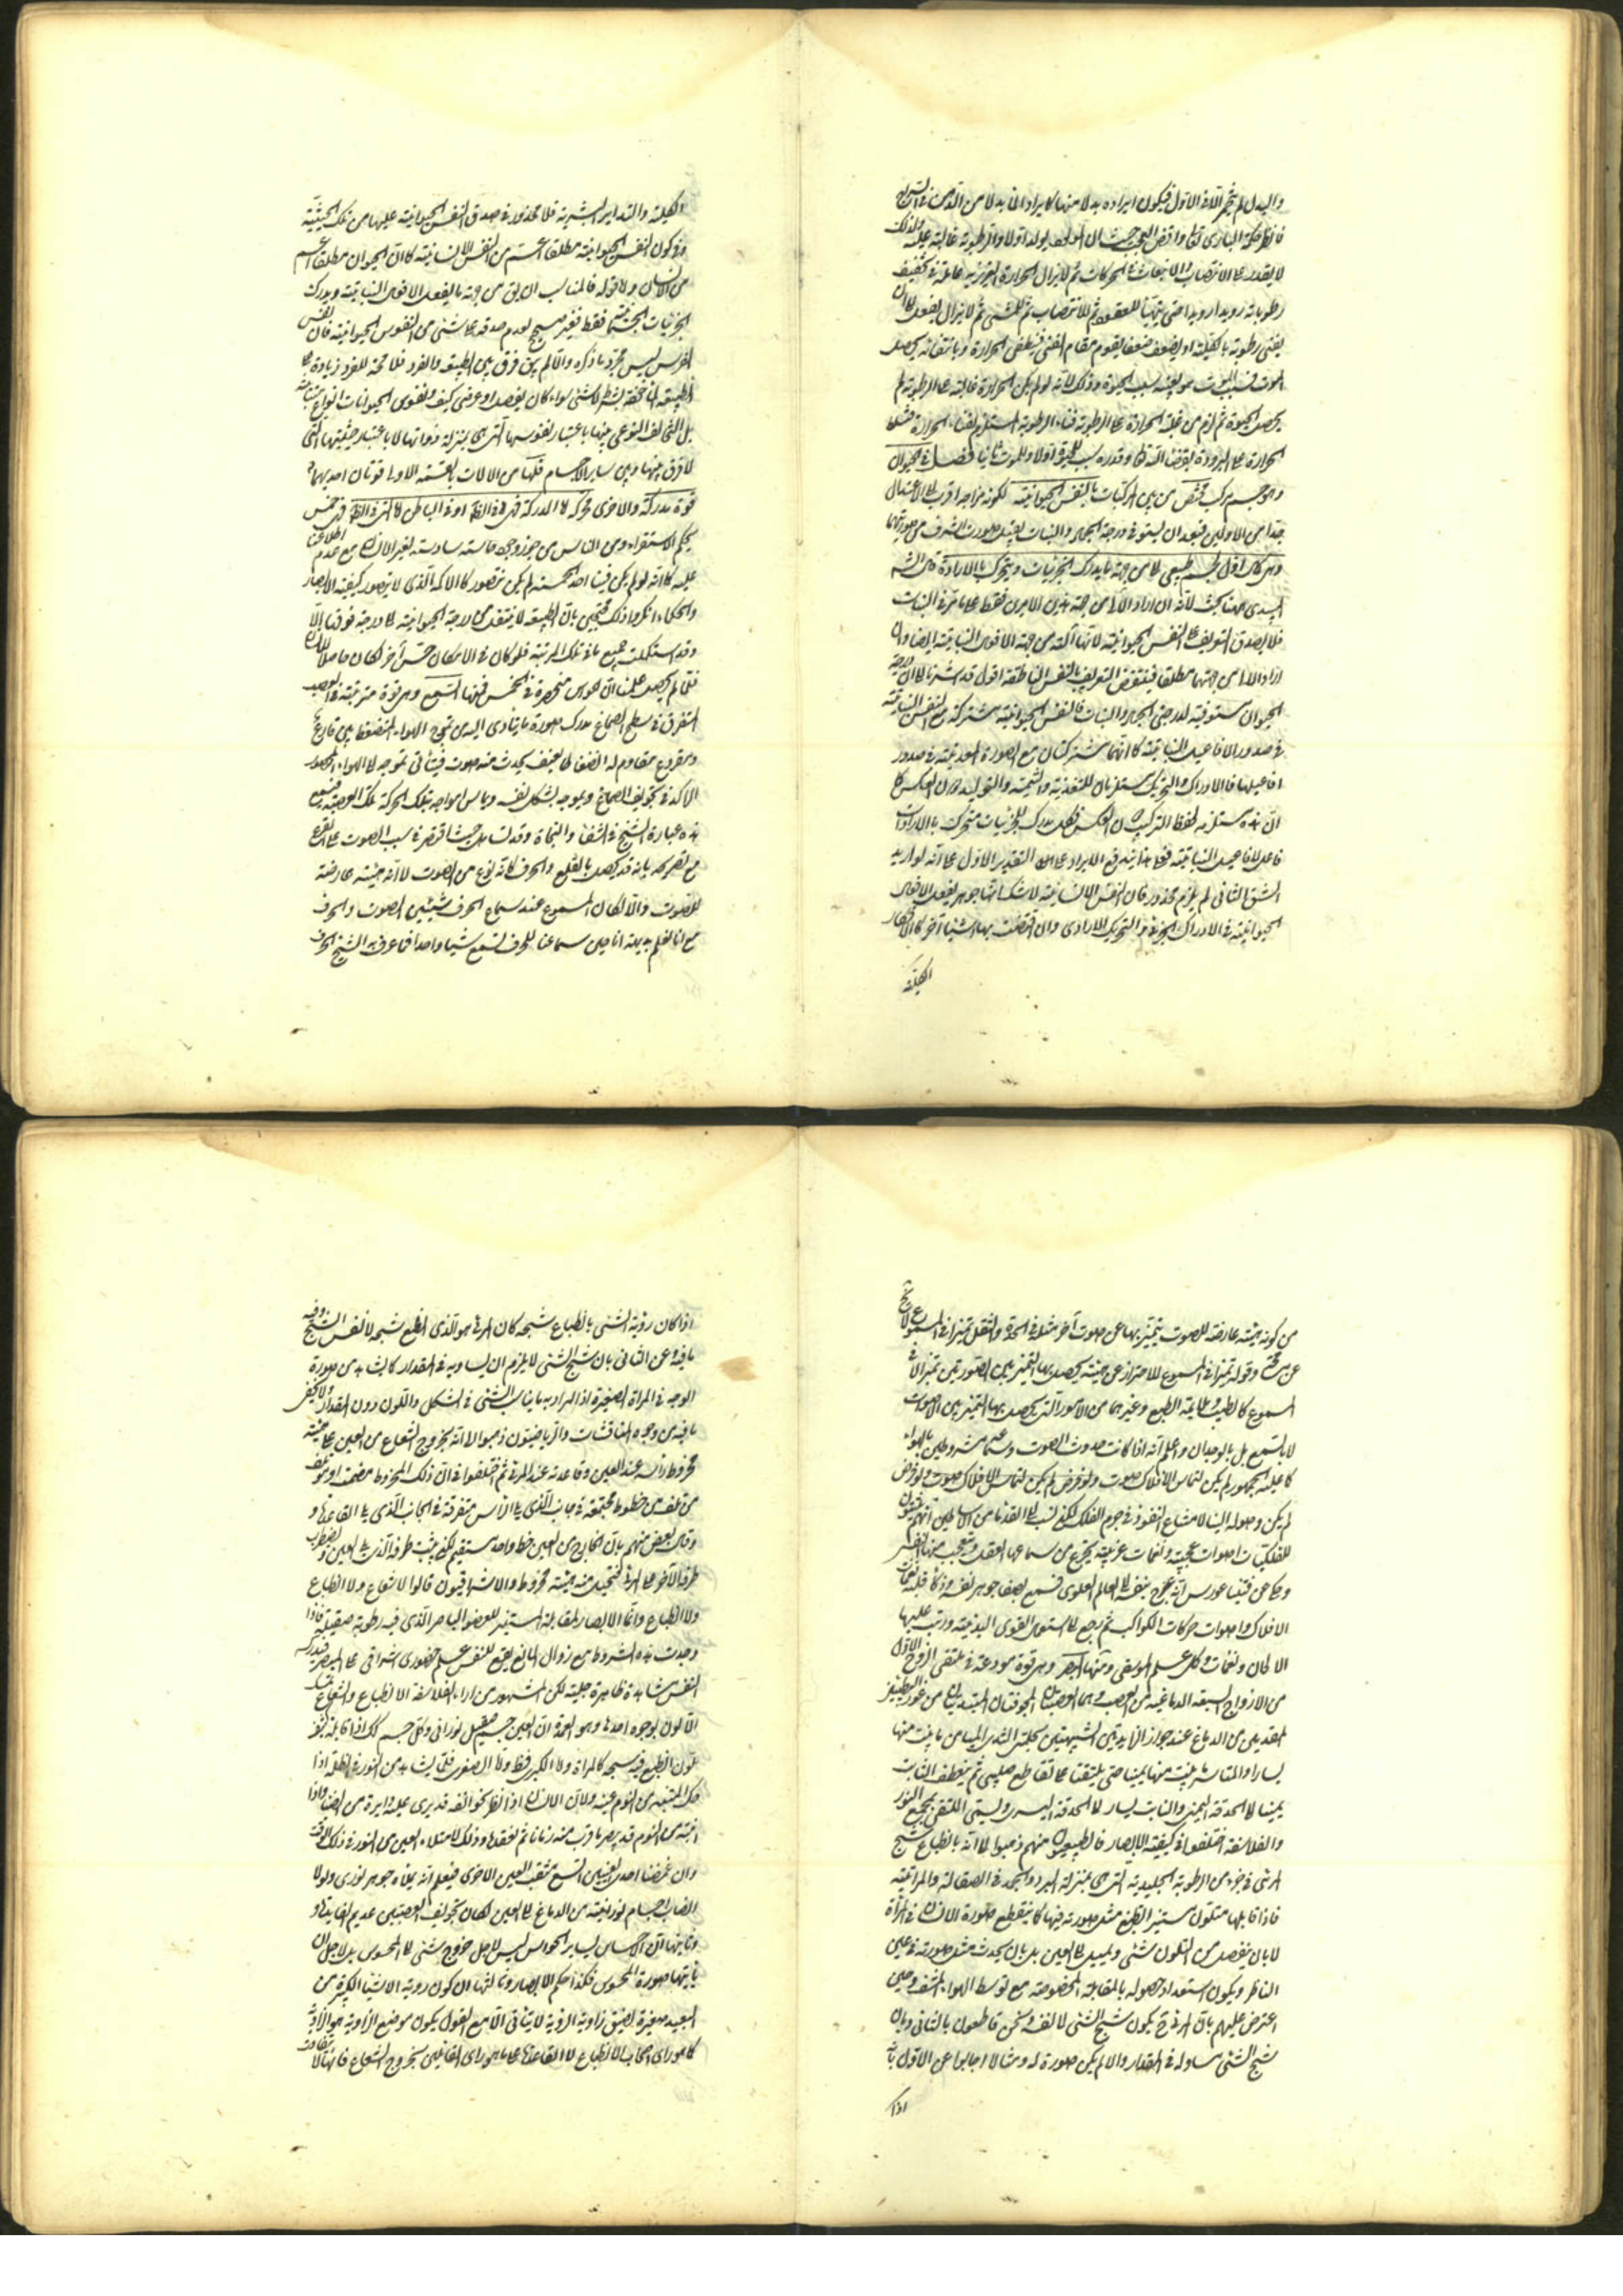 والبدل لم يتم اللا في الاول فيكون ايراده بدلا منها كايراد الغذاء بدلا من الدم
فانظر حكمة الباري تعالى واقض العجب حيث ان المولود يولد اولا والرطوبة غالبة عليه ولذلك
لا يقدر على الانتصاب والانبعاث في الحركات ثم لا يزال الحرارة الغريزية عاملة في تجفيف
رطوباته رويدا رويدا حتى يتهيأ للقعود ثم للانتصاب ثم للمشي ثم لا يزال يفعل الى ان
يفنى رطوبته بالكلية او يضعف ضعفا يقوم مقام الفنى فينطفي الحرارة وبانتفائه يحصل
الموت فسبب الموت هو بعينه سبب الحيوة وذلك لانه لو لم يكن الحرارة غالبة على الرطوبة لم
يحصل الحيوة ثم لزم من غلبة الحرارة على الرطوبة فناء الرطوبة المستلزم لفناء الحرارة
الحرارة على البرودة بقضاء الله تعالى وقدره سبب للحيوة اولا وللموت ثانيا فصل في الحيوان
وهو جسم مركب مختص من بين المركبات بالنفس الحيوانية لكونه مزاجه اقرب الى الاعتدال
جدا من الاولين فبعد ان يستوفي درجة الجماد والنبات يقبل صورة اشرف من صورتهما
وهي كمال اول لجسم طبيعي آلي من جهة ما يدرك الجزئيات ويتحرك بالارادة قال الشارح
الميبدي ههنا بحث لانه ان اراد الآلي من جهة هذين الامرين فقط على ما مر في النبات
فلا يصدق التعريف على النفس الحيوانية لانها آلية من جهة الافعال النباتية ايضا وان
اراد الآلي من جهتها مطلقا فينتقض التعريف بالنفس الناطقة اقول قد اشرنا الى ان درجة
الحيوان مستوفية لدرجتي الجماد والنبات فالنفس الحيوانية مشتركة مع النفس النباتية
في صدور الافاعيل النباتية كما انهما مشتركتان مع الصورة المعدنية في صدور
افاعيلها فالادراك والتحريك مستلزمان للتغذية والتنمية والتوليد دون العكس كما
ان هذه مستلزمة لحفظ التركيب دون العكس فكل مدرك للجزئيات متحرك بالارادة
فاعل للافاعيل النباتية فعلى هذا يندفع الايراد على التقدير الاول على انه لو اريد
الشق الثاني لم يلزم محذور فان النفس الانسانية لا شك انها جوهر يفعل الافعال
الحيوانية في الادراك الجزئي والتحريك الارادي وان اختصت بها اشياء آخر كالافكار
الكلية
الكلية والتدابير البشرية فلا محذور في صدق النفس الحيوانية عليها من تلك الحيثية
وفي كون النفس الحيوانية مطلقا اعم من النفس الانسانية كما ان الحيوان مطلقا اعم
من الانسان ولا قوله فالمناسب ان يق من جهة ما يفعل الافعال النباتية ويدرك
الجزئيات الجسمانية فقط فغير صحيح لعدم صدقه على شيء من النفوس الحيوانية فان نفس
الفرس ليس مجرد ما ذكره والا لم يبق فرق بين الطبيعة والفرد فلا محة للفرد زيادة على
الطبيعة
بل التخالف النوعي بينها باعتبار نفوسها التي هي بمنزلة ذواتها لا باعتبار جثتها التي
لا فرق بينها وبين ساير الاجسام فلها من الآلات بالقسمة الاولى قوتان احديهما
قوة مدركة والاخرى محركة اما المدركة فهي اما في الظاهر او في الباطن اما التي في الظاهر فهي خمس
بحكم الاستقراء ومن الناس من جوز وجود حاسة سادسة لغير الانسان مع عدم اطلاعنا
عليه كما انه لو لم يكن فينا احد الخمسة لم يكن نتصور كالاكمه الذي لا يتصور كيفية الابصار
والحكماء انكروا ذلك محتجين بان الطبيعة لا ينتقل من درجة الحيوانية الى درجة فوقها الا
وقد استكملت جميع ما في تلك المرتبة فلو كان في الامكان حس آخر لكان حاصلا للانسان
فلما لم يحصل علمنا ان الحواس منحصرة في الخمس فمنها السمع وهو قوة مترتبة في العصب
المتفرق في سطح الصماخ يدرك صورة ما يتادى اليه من تموج الهواء المنضغط بين قارع
ومقروع مقاوم له انضغاطا بعنف يحدث منه صوت فيتأدى تموجه الى الهواء المحصور
الراكد في تجويف الصماخ ويموجه بشكل نفسه ويماس امواجه بتلك الحركة تلك العصبة فتسمع
هذه عبارة الشيخ في الشفاء والنجاة وقد تساهل حيث اقتصر في سبب الصوت على القرع
مع تصريحه بانه قد يحصل بالقلع والحرف كانه نوع من الصوت لا انه هيئة عارضة
للصوت والا لكان المسموع عند سماع الحرف شيئين الصوت والحرف
مع انا نعلم بديهة انا حين سماعنا للحرف نسمع شيئا واحدا فما عرف به الشيخ الحرف
من كونه هيئة عارضة للصوت يتميز بها عن صوت آخر مثله في الحدة والثقل تميزا في المسموع
وقوله تميزا في المسموع للاحتراز عن هيئة يحصل بها التميز بين الصوتين تميزا لا في
المسموع كالطيب وملايمة الطبع وغيرهما من الامور التي يحصل بها التميز بين الاصوات
لا بالسمع بل بالوجدان واعلم انه اذا كانت حدوث الصوت وسماعه مشروطين بالهواء
كما عليه الجمهور لم يكن لتماس الافلاك صوت ولو فرض لم يكن لتماس الافلاك صوت ولو فرض
لم يكن وصوله الينا لامتناع النفوذ في جرم الفلك لكن نسب الى القدماء من الاساطين انهم يثبتون
للفلكيات اصوات عجيبة ونغمات غريبة يتحير من سماعها العقل ويتعجب منها النفس
وحكي عن فيثاغورس انه عرج بنفسه الى العالم العلوي فسمع بصفاء جوهر نفسه وذكاء قلبه نغمات
الافلاك واصوات حركات الكواكب ثم رجع الى استعمال القوى البدنية ورتب عليها
الالحان والنغمات وكمل علم الموسيقى ومنها البصر وهو قوة مودعة في ملتقى الزوج الاول
من الازواج السبعة الدماغية من العصب وهما العصبتان المجوفتان المبتديتان من غور البطنين
المقدمين من الدماغ عند جوار الزايدتين الشبيهتين بحلمتي الثدي المتيامن ما ينبت منها
يسارا والمتياسر ما ينبت منها يمينا حتى يلتقيا على تقاطع صليبي ثم ينعطف النابت
يمينا الى الحدقة اليمنى والنابت يسارا الى الحدقة اليسرى ويسمى الملتقى بمجمع النور
والفلاسفة اختلفوا في كيفية الابصار فالطبيعيون منهم ذهبوا الى انه بانطباع شبح
المرئي في جزء من الرطوبة الجليدية التي هي بمنزلة البرد والجمد في الصقالة والمرآتية
فاذا قابلها متلون مستنير انطبع مثل صورته فيها كما ينطبع صورة الانسان في المرآة
لا بان ينفصل من المتلون شيء ويميل الى العين بل بان يحدث مثل صورته في عين
الناظر ويكون استعداد حصوله بالمقابلة المخصوصة مع توسط الهواء المشف وحين
اعترض عليهم بان المرئي ح يكون شبح الشيء لا نفسه ونحن قاطعون بالثاني وبان
شبح الشيء مساو له في المقدار والا لم يكن صورة له ومثالا اجابوا عن الاول بانه
اذا
اذا كان رؤية الشيء بانطباع شبحه كان المرئي هو الذي انطبع شبحه لا نفس الشبح وفيه
ما فيه وعن الثاني بان شبح الشيء لا يلزم ان يساويه في المقدار كما يشاهد من صورة
الوجه في المرآة الصغيرة اذ المراد به ما يناسب الشيء في الشكل واللون دون المقدار ولا يخفى
ما فيه من وجوه المناقشات والرياضيون ذهبوا الى انه بخروج الشعاع من العين على هيئة
مخروط رأسه عند العين وقاعدته عند المرئي ثم اختلفوا في ان ذلك المخروط مصمت او مؤتلف
من خطوط مجتمعة في جانب الذي يلي الرأس متفرقة في الجانب الذي يلي القاعدة و
وقال بعض منهم بان الخارج من العين خط واحد مستقيم لكن يثبت طرفه الذي يلي العين ويضطرب
طرفه الآخر على المرئي فتتخيل منه هيئة مخروط والاشراقيون قالوا لا شعاع ولا انطباع
ولا انطباع وانما الابصار بمقابلة المستنير للعضو الباصر الذي فيه رطوبة صقيلة فاذا
وجدت هذه الشروط مع زوال المانع يقع للنفس علم حضوري اشراقي على المبصر فيدركه
النفس مشاهدة ظاهرة جلية لكن المشهور من آراء الفلاسفة الانطباع والشعاع تمسك
الاولون بوجوه احدها وهو العمدة ان العين جسم صقيل نوراني وكل جسم كك اذا قابله كثيف
ملون انطبع فيه شبحه كالمرآة ولا الكبرى فظ وما الصغرى فلما يشاهد من النور في الظلمة اذا
حك المنتبه من النوم عينه ولان الانسان اذا نظر نحو انفه قد يرى عليه دايرة من الضياء واذا
انتبه من النوم قد يبصر ما قرب منه زمانا ثم يفقده وذلك لامتلاء العين من النور في ذلك الوقت
وان غمضنا احدى العينين اتسع مثقب العين الاخرى فيعلم انه يملأه جوهر نوري ولولا
انصباب اجسام نورانية من الدماغ الى العين لكان تجويف العصبتين عديم الفايدة و
وثانيها ان الاحساس بساير الحواس ليس لاجل خروج شيء الى المحسوس بل لاجل ان
يأتيها صورة المحسوس فكذا حكم الابصار وثالثها ان كون رؤية الاشياء الكبيرة من
البعيد صغيرة لضيق زاوية الرؤية لا يتأتى الا مع القول بكون موضع الزاوية هو الزاوية
كما هو راي اصحاب الانطباع لا القاعدة على ما هو راي القائلين بخروج الشعاع فانها لا